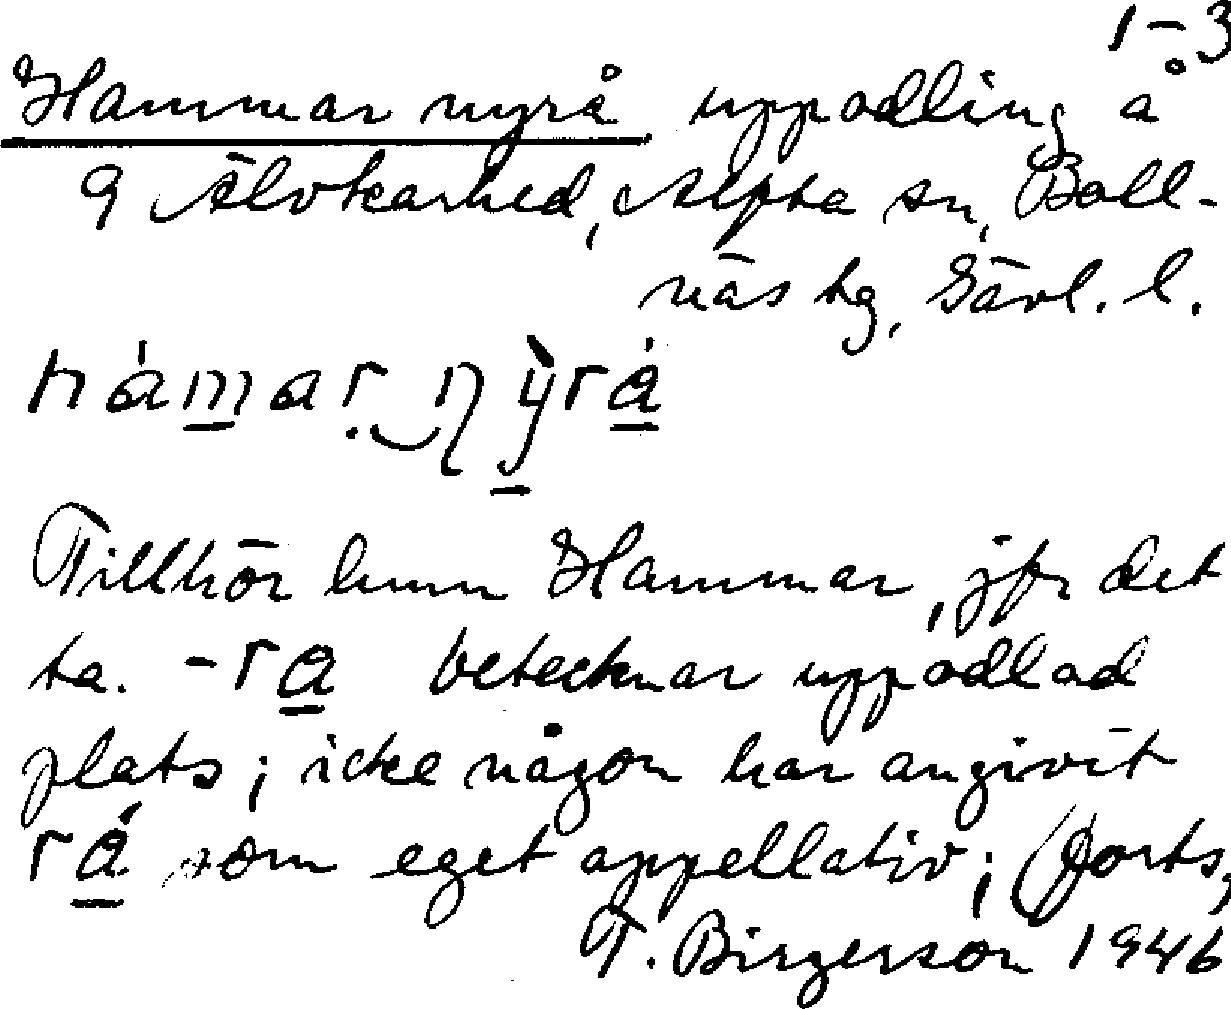 1-3
Hammar nyrå uppodling å
9 Älvkarhed, Alfta sn, Boll-
näs tg, Gävl. l.
hámar nỳrá
Tillhör hmn Hammar, jfr det
ta. -ra betecknar uppodlad
plats; icke någon har angivit
rá som eget appellativ; (forts,
T. Birgerson 1946